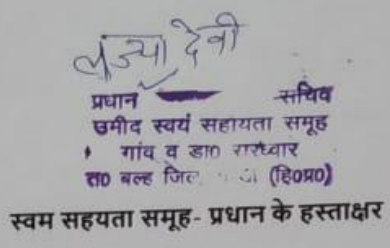 लज्या देवी
प्रधान सचिव
उमीद स्वयं सहायता समूह
गांव व डा०
त० बल्ह (हि०प्र०)
स्वम सहयता समूह- प्रधान के हस्ताक्षर